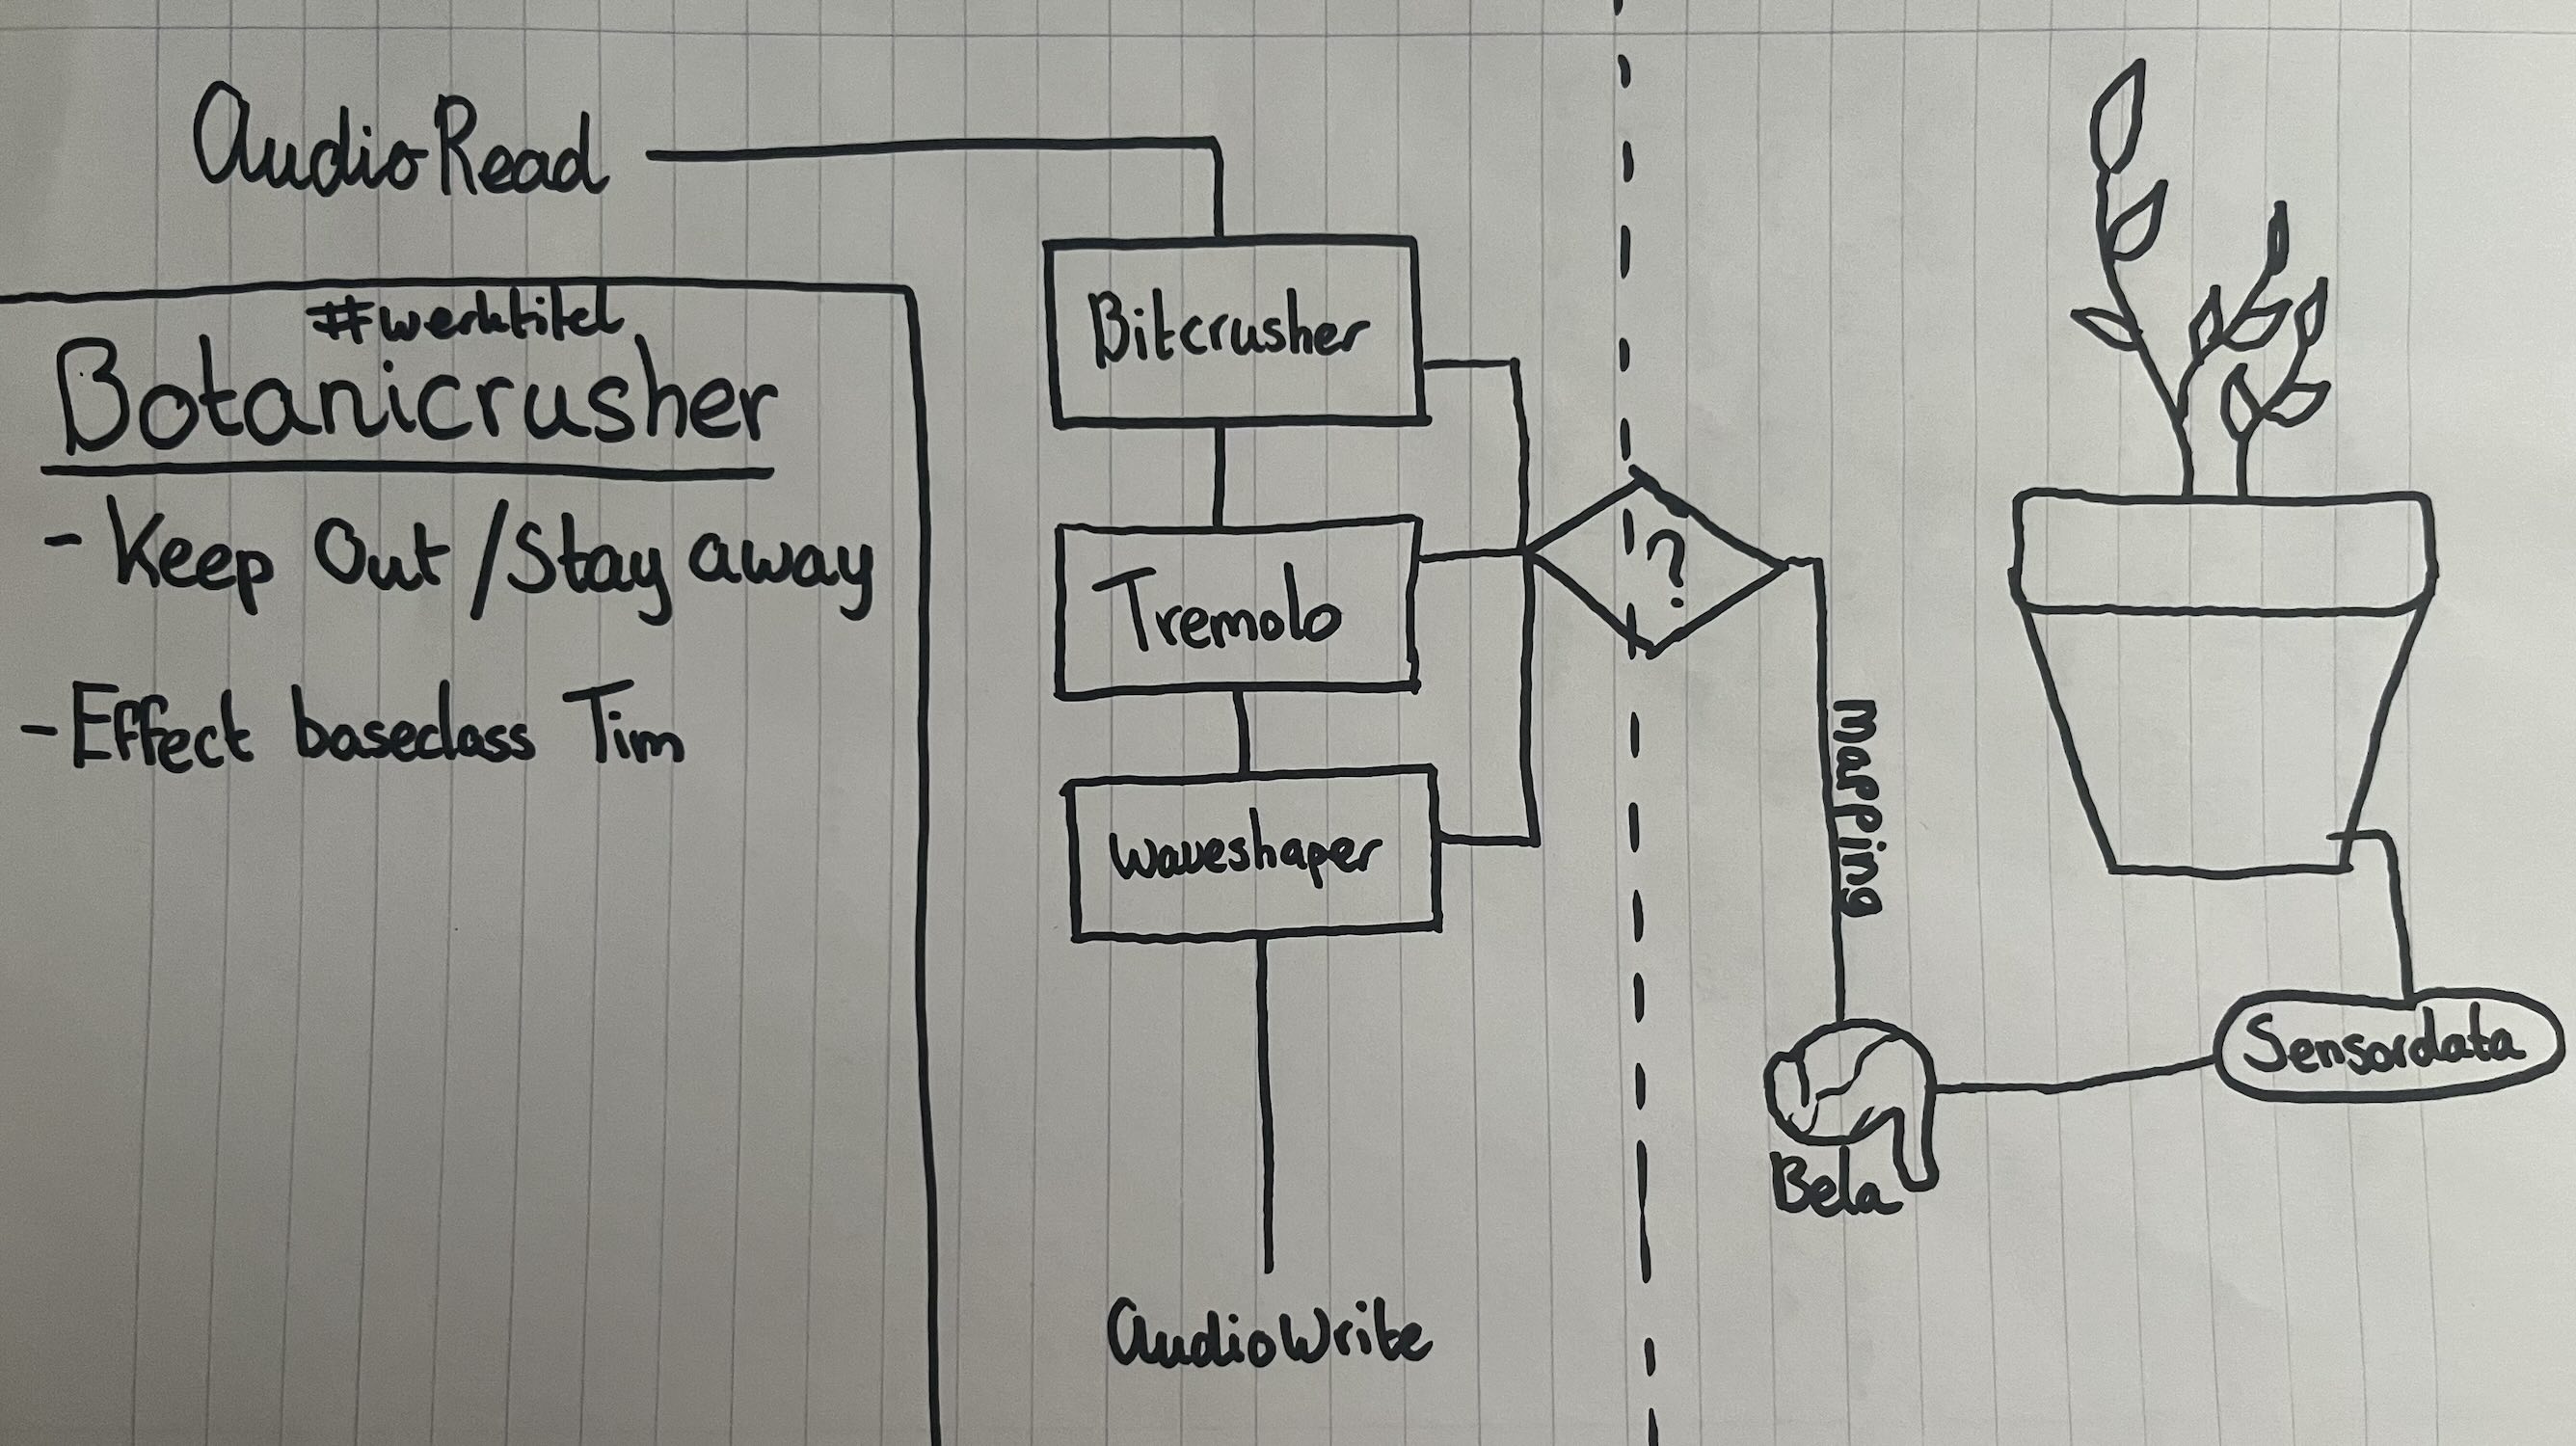 AudioRead
#werktitel
Botanicrusher
- Keep Out / Stay away
- Effect baseclass Tim
Bitcrusher
Tremolo
waveshaper
AudioWrite
?
Mapping
Bela
Sensordata